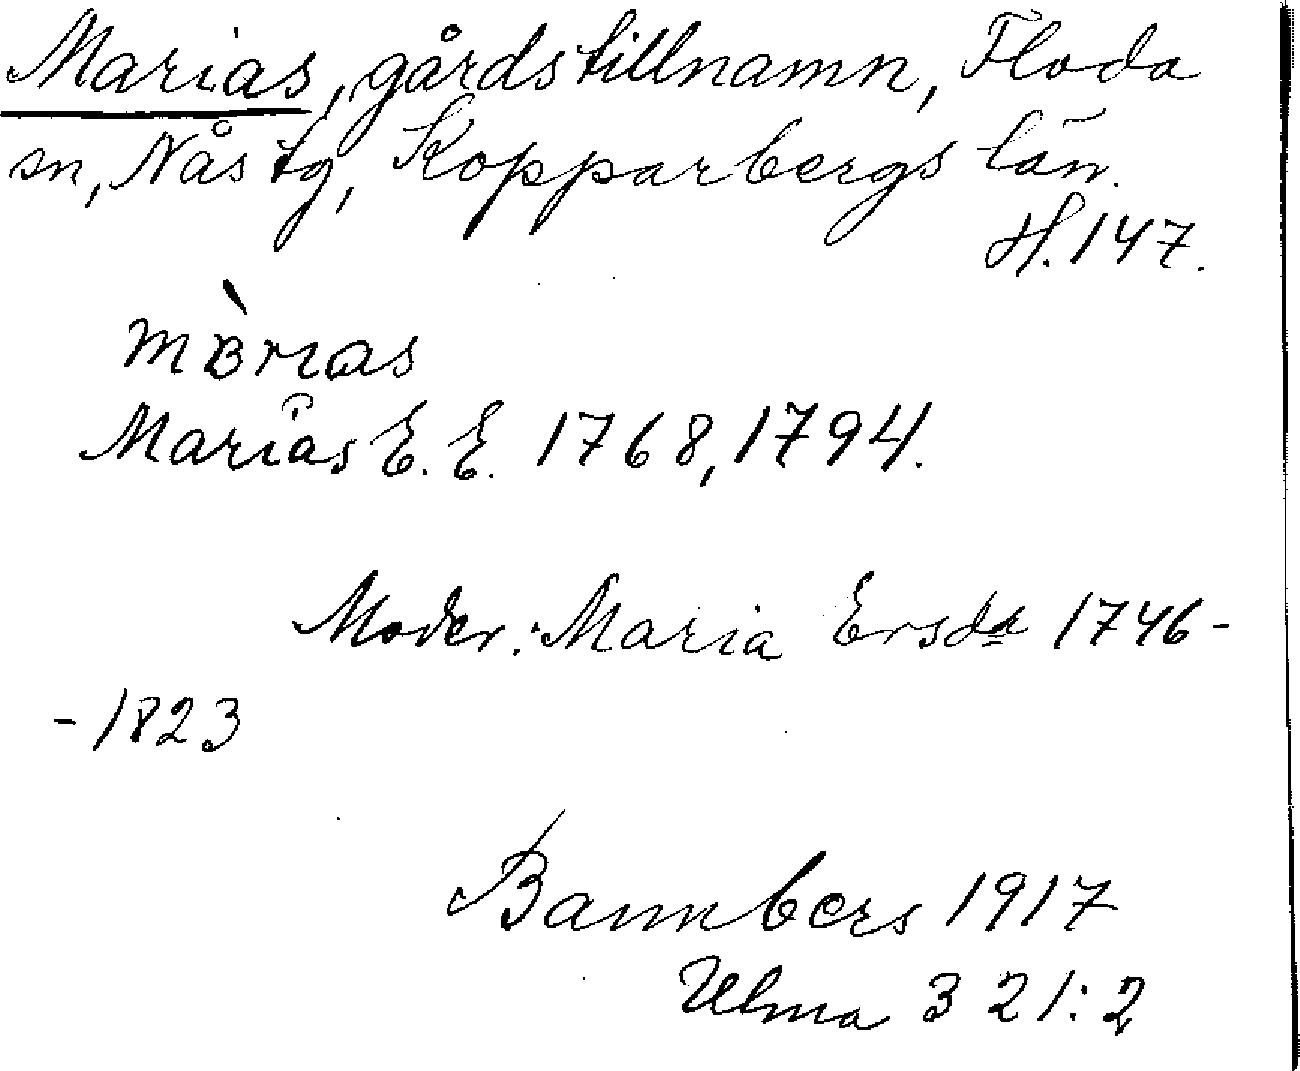 Marias, gårdstillnamn, Floda
sn, Nås tg, Kopparbergs län.
H. 147.
Marias E. E. 1768, 1794.
Moder: Maria Ersda 1746-
- 1823
Bannbers 1917
Ulma 321:2